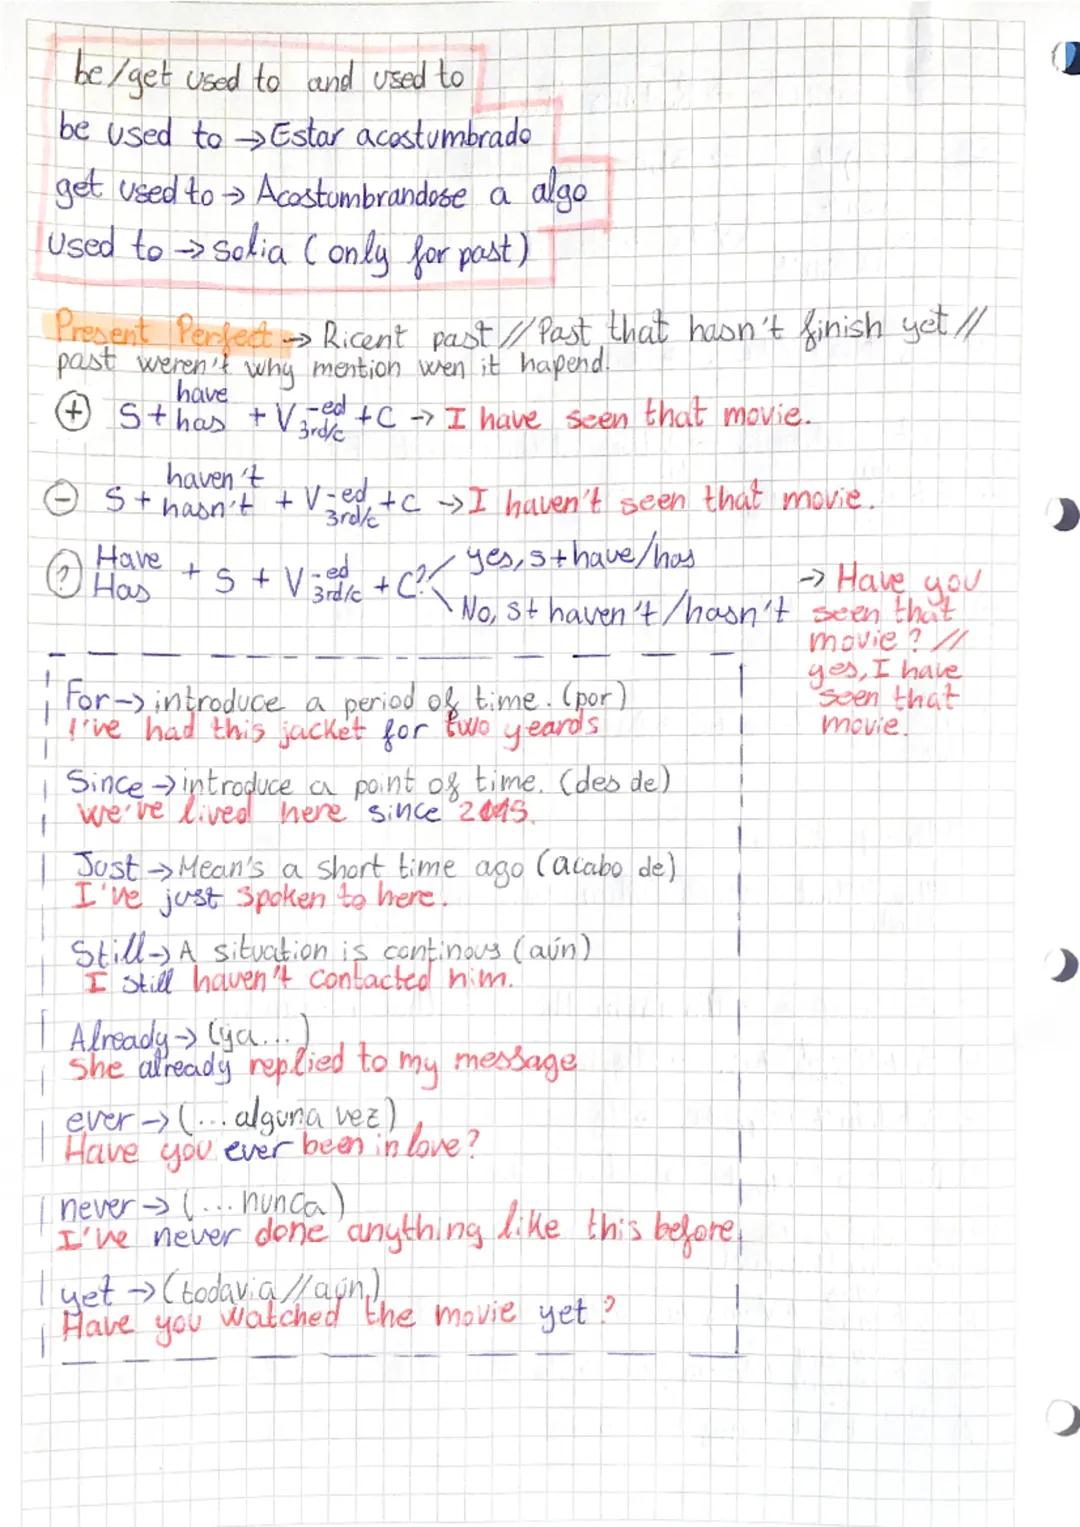 be/get used to and used to
be used to → Estar acostumbrado
get used to → Acostumbrandose a algo
Used to → solia (only for past)
Present Perfect → Ricent past // Past that hasn't finish yet //
past weren't why mention wen it hapend.
have
+ S + has + V -ed 3rd/c + C → I have seen that movie.
haven't
- S + hasn't + V -ed 3rd/c + C → I haven't seen that movie.
? Have Has + S + V -ed 3rd/c + C? yes, s + have/has
No, s + haven't/hasn't
→ Have you
seen that
movie? //
yes, I have
seen that
movie.
For → introduce a period of time. (por)
I've had this jacket for two yeards
Since → introduce a point of time. (desde)
We've lived here since 2015.
Just → Mean's a short time ago (acabo de)
I've just spoken to here.
Still → A situation is continous (aún)
I still haven't contacted him.
Already → (ya...)
She already replied to my message
ever → (... alguna vez)
Have you ever been in love?
never → (... nunca)
I've never done anything like this before.
yet → (todavia // aún)
Have you watched the movie yet?